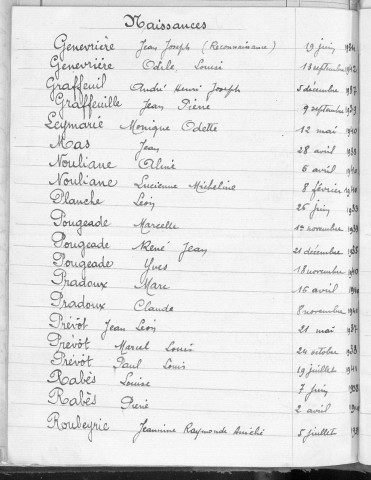 Naissances
Genevrière Jean Joseph (Reconnaissance) 19 juin
Genevrière Odile, Louise 13 septembre 1942
Graffeuil André Henri Joseph 5 décembre 1937
Graffeuille Jean Pierre 9 septembre 1939
Leymarie Monique Odette 12 mai 1940
Mas Jean 28 avril 1938
Nouliane Aliné 6 avril 1940
Nouliane Lucienne Micheline 8 février 1940
Planche Léon 26 juin 1933
Pougeade Marcelle 1er novembre 1933
Pougeade René Jean 21 décembre 1938
Pougeade Yves 18 novembre 1940
Pradoux Marc 16 avril 1940
Pradoux Claude 8 novembre 1941
Prévôt Jean Léon 21 mai 1937
Prévôt Marcel Louis 24 octobre 1938
Prévôt Paul Louis 19 juillet 1941
Rabès Louise 7 juin 1938
Rabès Pierre 2 avril
Roubeyrie Jeannine Raymonde 5 juillet